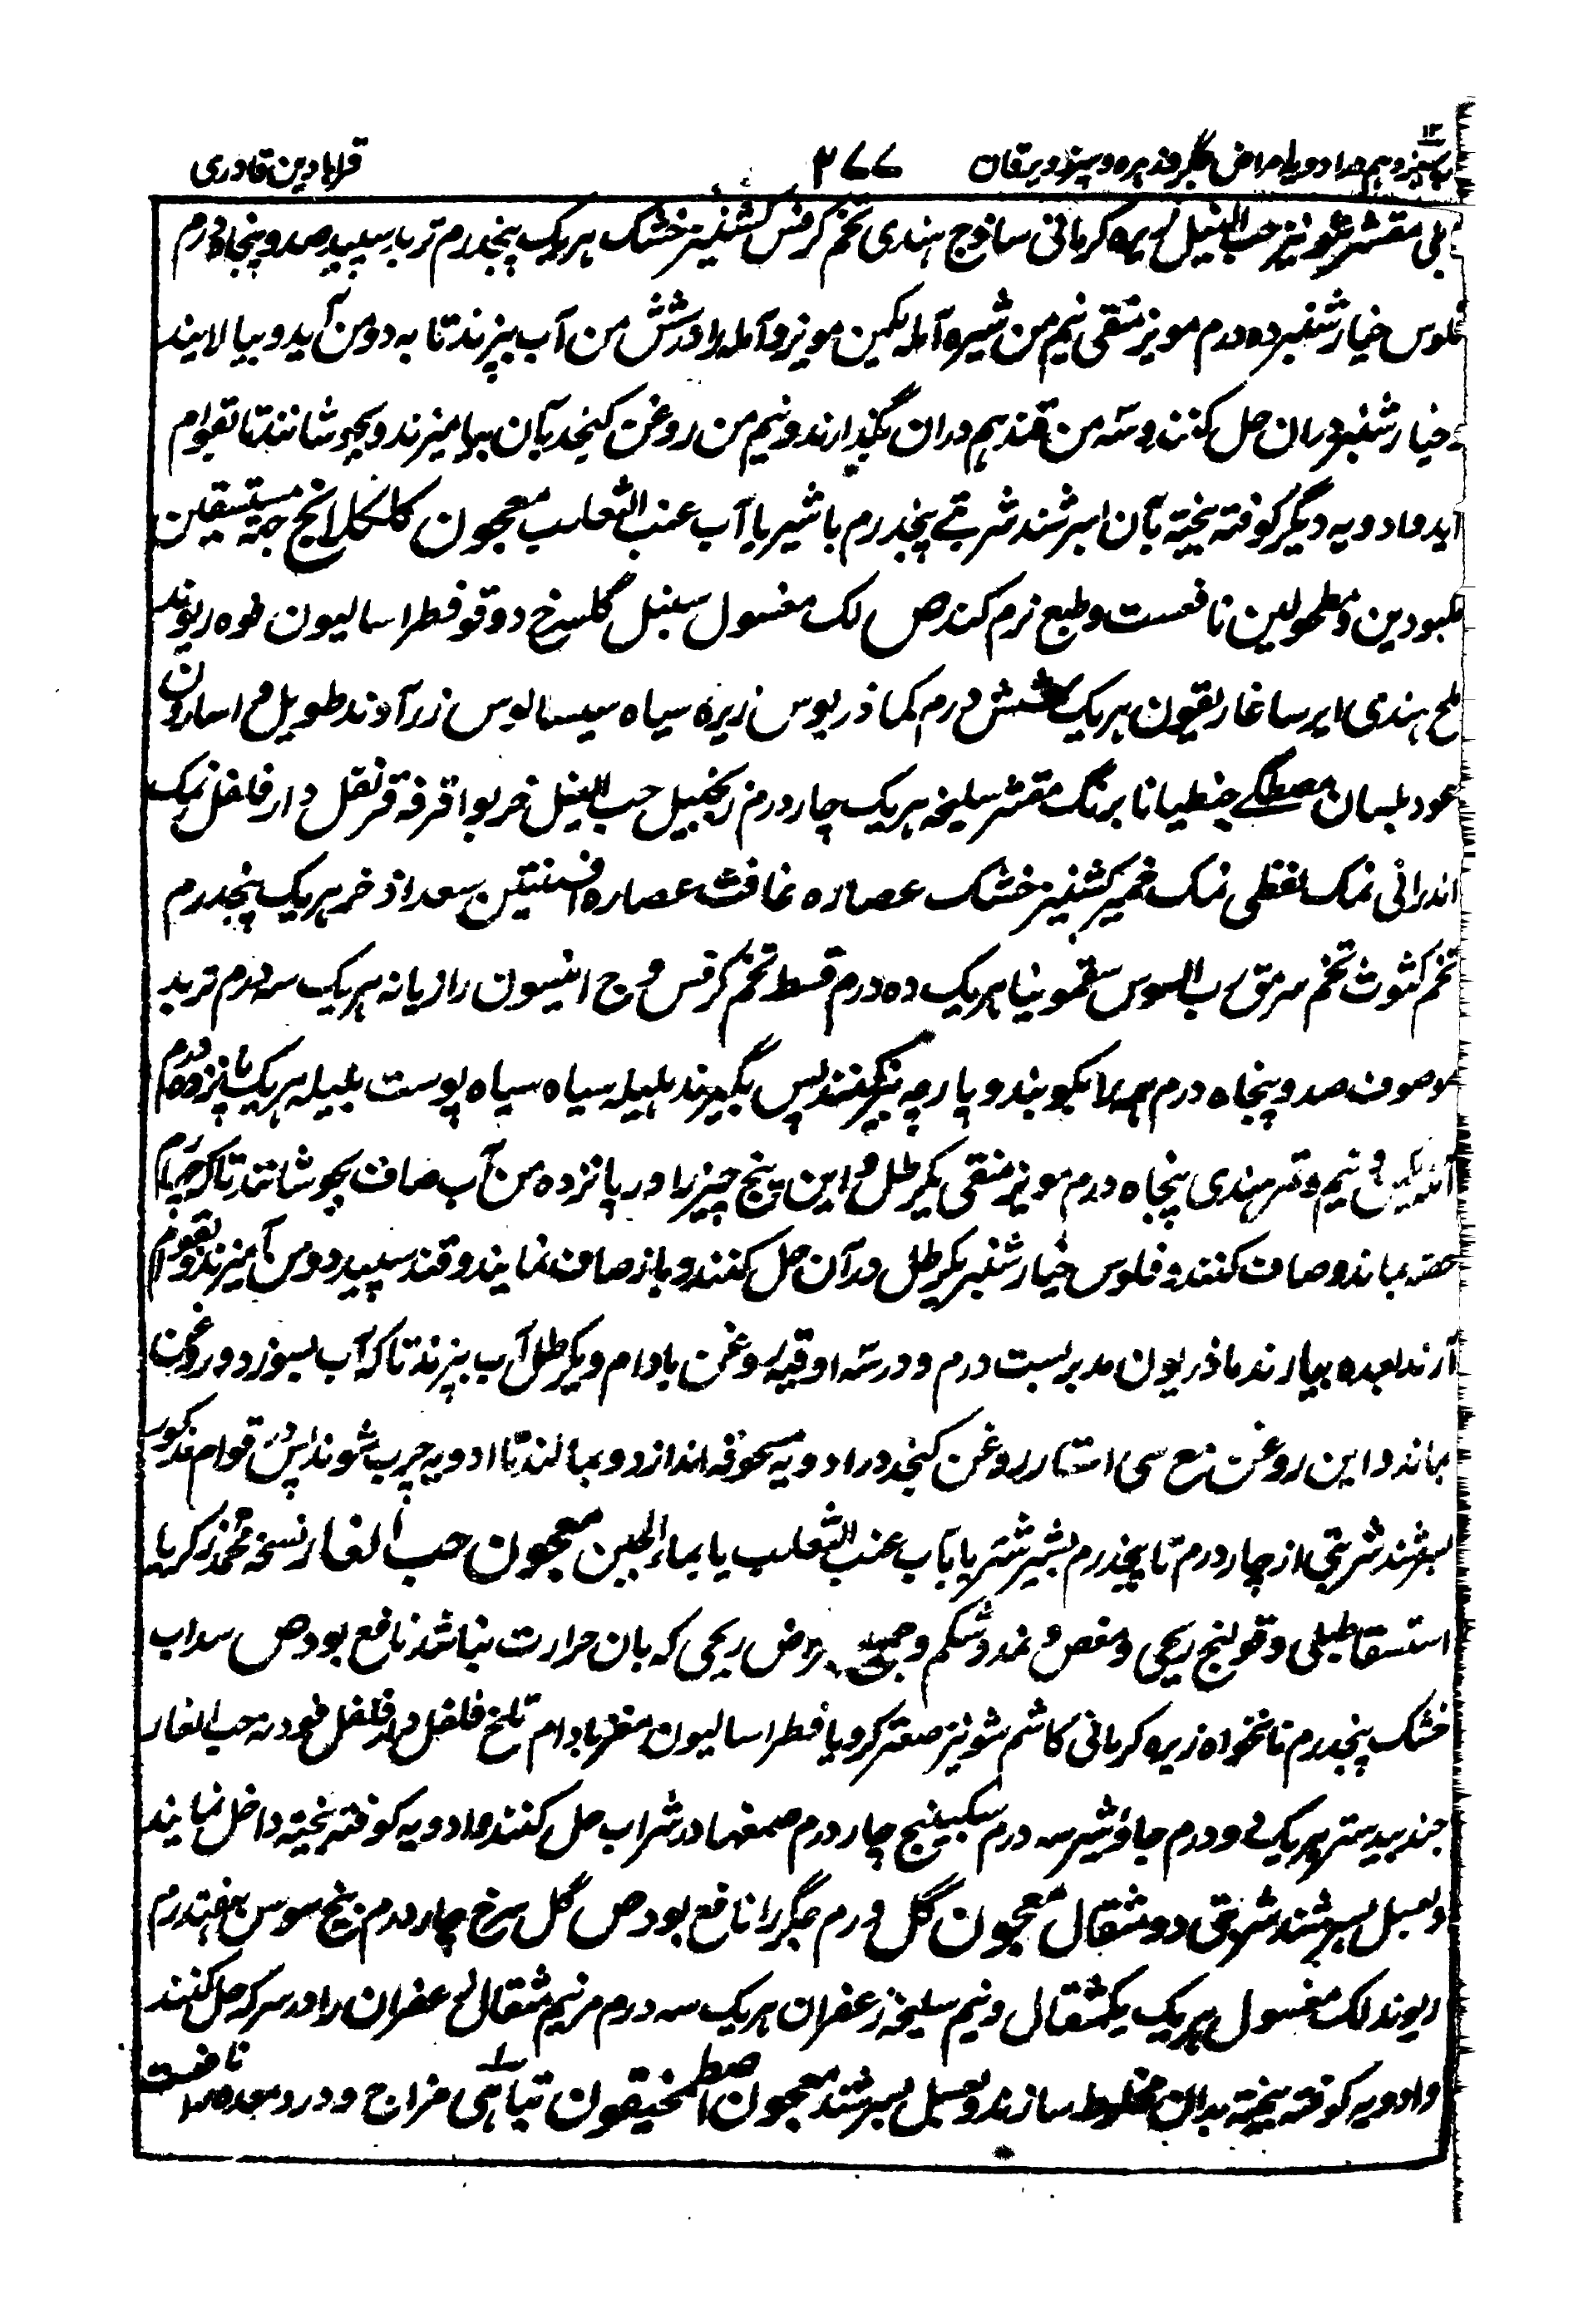 باب سیزدهم در ادویه امراض جگر و زهره و سپرز و یرقان ۲۷۷ قرابادین قادری
مقشر شونیز حب النیل زیره کرمانی ساذج هندی تخم کرفس کشنیز خشک هریک پنجدرم تربد سپید صد و پنجاه درم
فلوس خیارشنبر ده درم مویز منقی نیم من شیره آمله یکمن مویز و آمله را در شش من آب بپزند تا به دو من آید و بپالایند
و خیارشنبر دران حل کنند و سه من قند هم دران بگدازند و نیم من روغن کنجد بآن بیامیزند و بجوشانند تا بقوام
آید و ادویه دیگر کوفته بیخته بآن بسرشند شربتے پنجدرم با شیر یا آب عنب الثعلب معجون کلکلانج جهة مستسقین
مکبودین و مطحولین نافعست و طبع نرم کند ص لک مغسول سنبل گلسرخ دوقو فطراسالیون فوه ریوند
ملح هندی ایرسا غاریقون هریک شش درم کماذریوس زیره سیاه سیسالیوس زرآوند طویل اسارون
عود بلسان مصطگے جنطیانا برنگ مقشر سلیخه هریک چار درم زنجبیل حب النیل خربوا قرفه قرنفل دارفلفل نمک
اندرانی نمک نفطی نمک خمیر کشنیز خشک عصاره غافث عصاره افسنتین سعد اذخر هریک پنجدرم
تخم کثوث تخم سرمق رب السوس سقمونیا هریک ده درم قسط تخم کرفس وج انیسون رازیانه هریک سه درم تربد
موصوف صد و پنجاه درم همه را بکوبند و پارچه بیز کنند پس بگیرند هلیله سیاه سیاه پوست بلیله هریک پانزده درم
آمله و نیم و تمر هندی پنجاه درم مویز منقی یکرطل و این پنج چیز را در پانزده من آب صاف بجوشانند تا که چهارم
حصه بماند و صاف کنند و فلوس خیارشنبر یکرطل درآن حل کنند و باز صاف نمایند و قند سپید دو من آمیزند و بقوام
آرند بعده بیارند ماذریون مدبر بست درم و در سه اوقیه روغن بادام و یکرطل آب بپزند تا که آب بسوزد و روغن
بماند و این روغن مع سی استار روغن کنجد در ادویه مسحوقه اندازد و بمالند تا ادویه چرب شوند پس در قوام مذکور
بسرشند شربتی از چار درم تا پنجدرم بشیر شتر یا بآب عنب الثعلب یا بماء الجبن معجون حب الغار نسخه محمد زکریا
استسقا طبلی و قولنج ریحی و مغص و تمدد شکم و جمیع مرض ریحی که بان حرارت نباشد نافع بود ص سداب
خشک پنجدرم نانخواه زیره کرمانی کاشم شونیز صعتر کرویا فطراسالیون مغز بادام تلخ فلفل دارفلفل فودنه حب الغار
جندبیدستر هریک دو درم جاؤشیر سه درم سکبینج چار درم صمغها در شراب حل کنند و ادویه کوفته بیخته داخل نمایند
و بعسل بسرشند شربتی دو مثقال معجون گل ورم جگر را نافع بود ص گل سرخ چار درم بیخ سوس هفتدرم
ریوند لک مغسول هریک یکمثقال و نیم سلیخه زعفران هریک سه درم مر نیم مثقال زعفران را در سرکه حل کنند
و ادویه کوفته بیخته بدان مخلوط سازند و بعسل بسرشند معجون اصطمخیقون تباهی مزاج و درد معده را نافعست